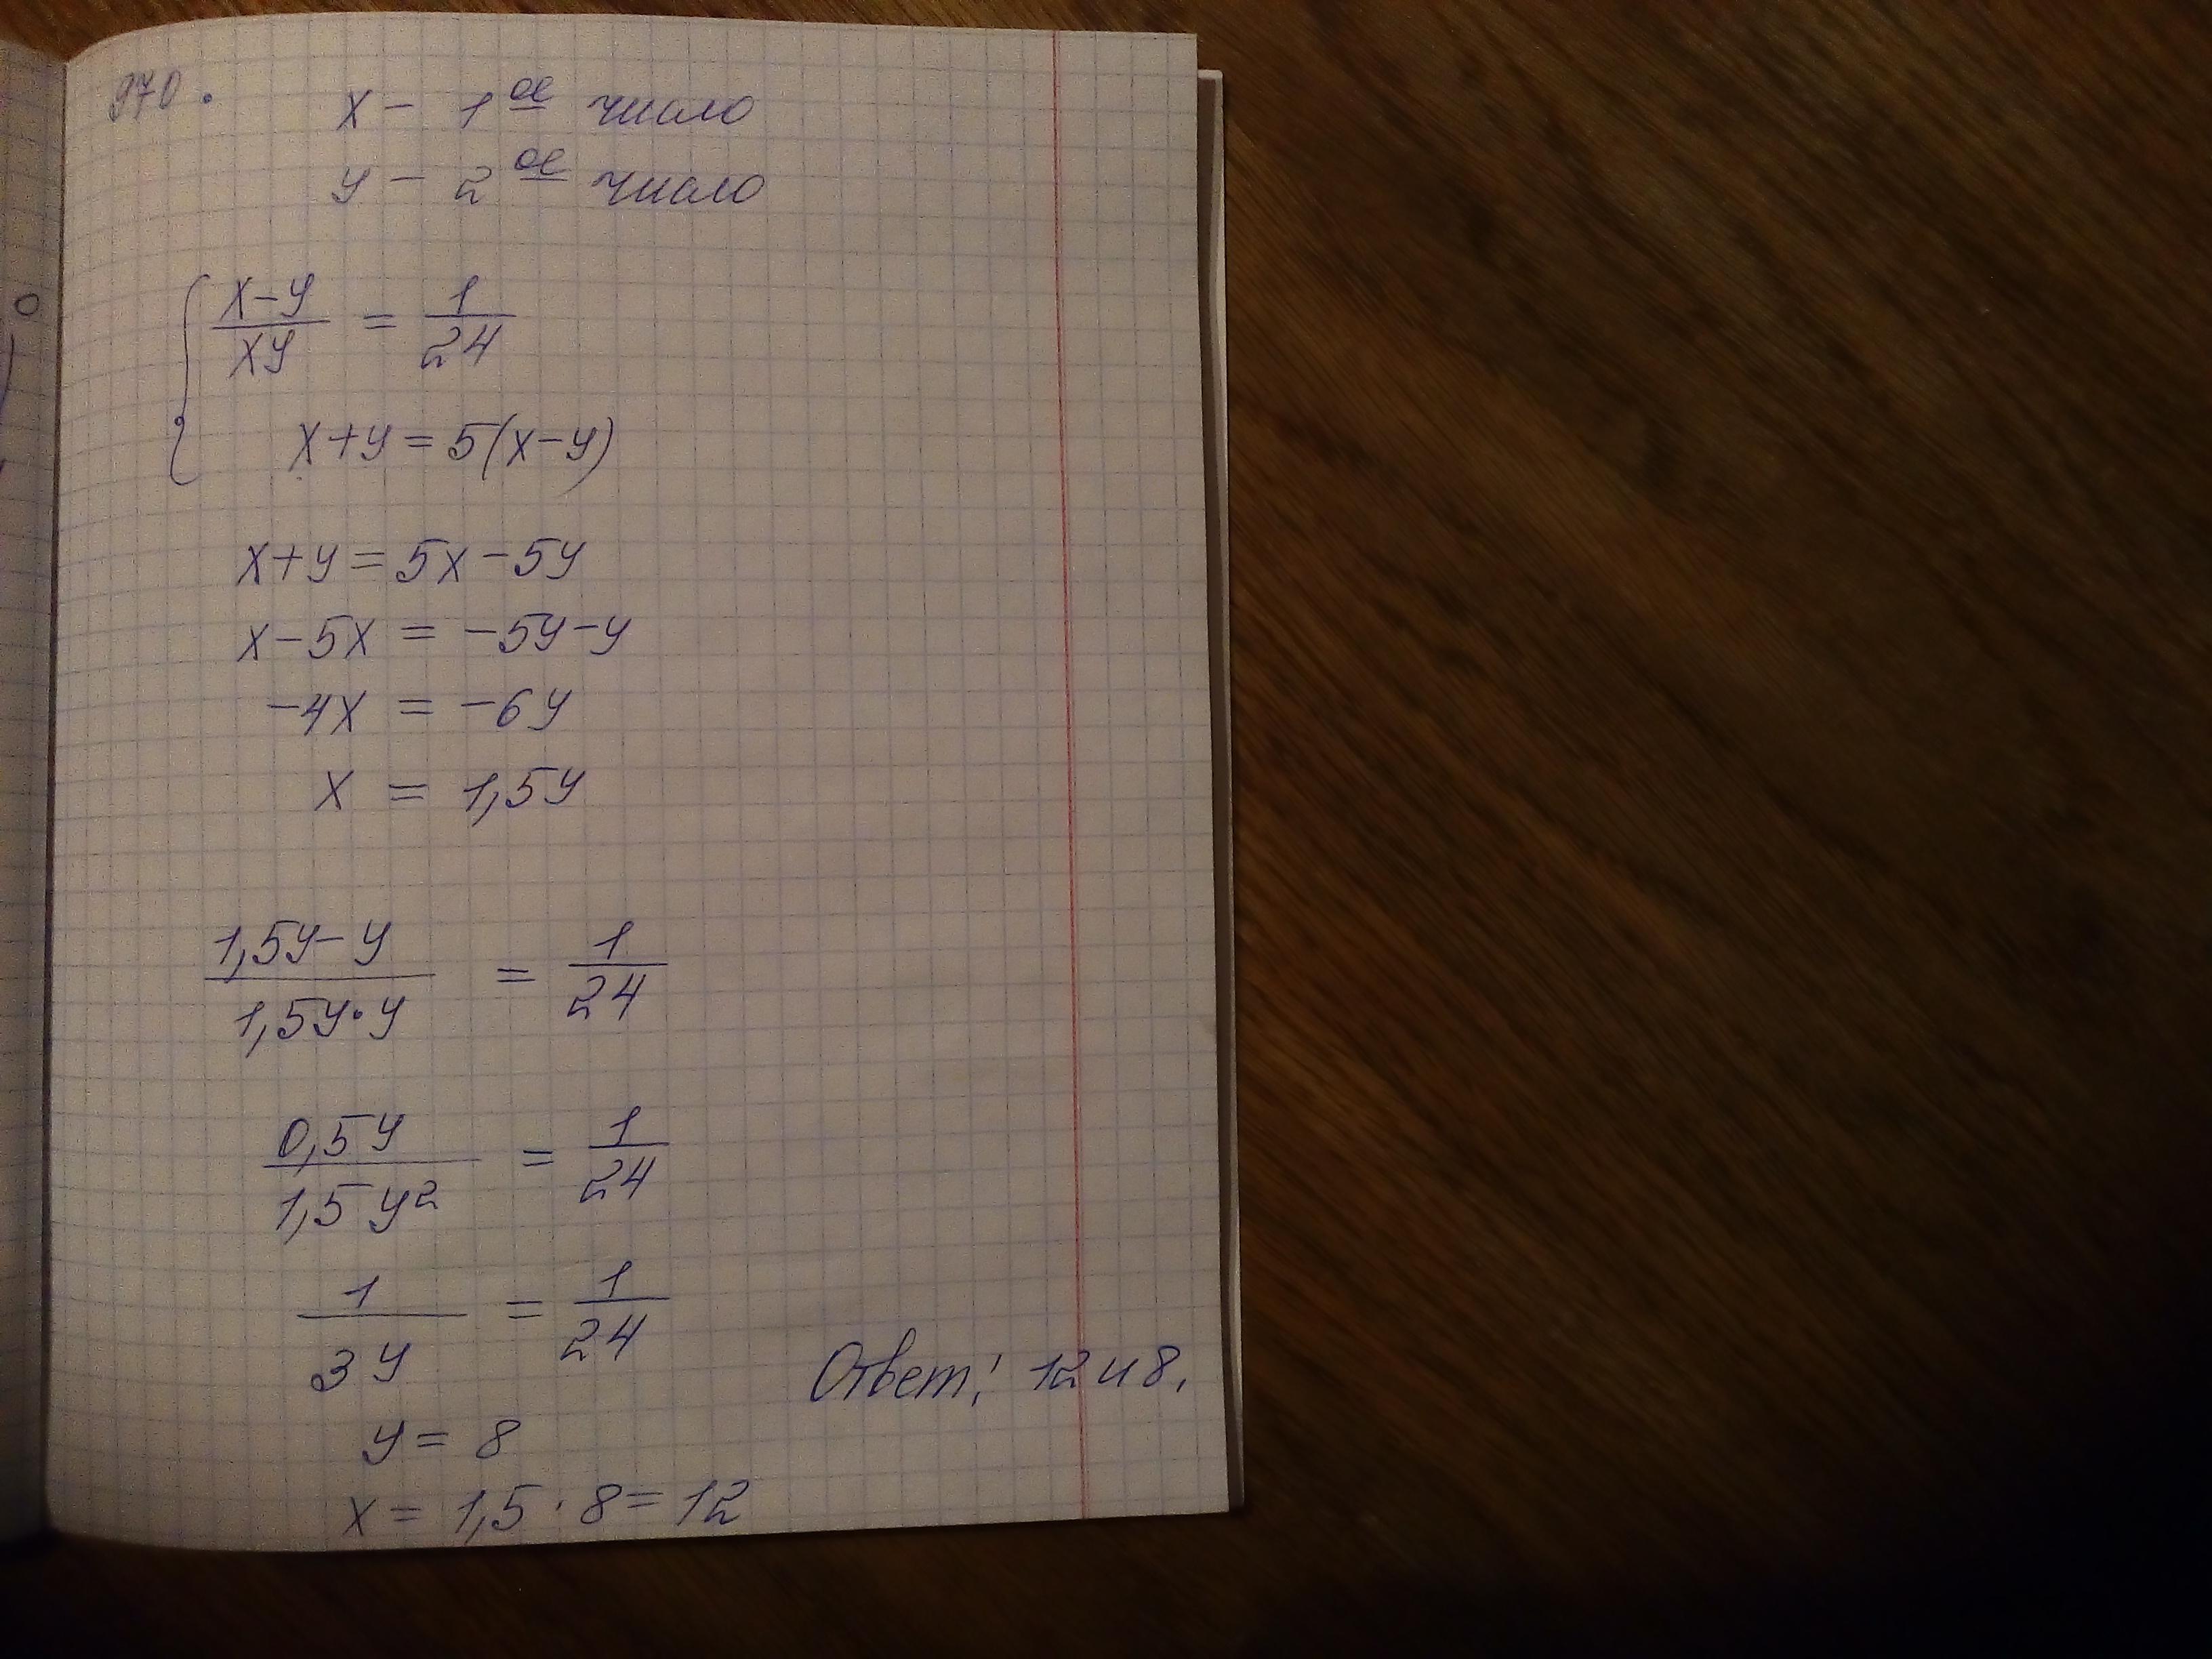 970.
x - 1ое число
y - 2ое число
{ (x-y)/(xy) = 1/24
x+y = 5(x-y)
x+y = 5x-5y
x-5x = -5y-y
-4x = -6y
x = 1,5y
(1,5y-y)/(1,5y·y) = 1/24
0,5y/(1,5y²) = 1/24
1/(3y) = 1/24
y = 8
Ответ: 12 и 8.
x = 1,5 · 8 = 12